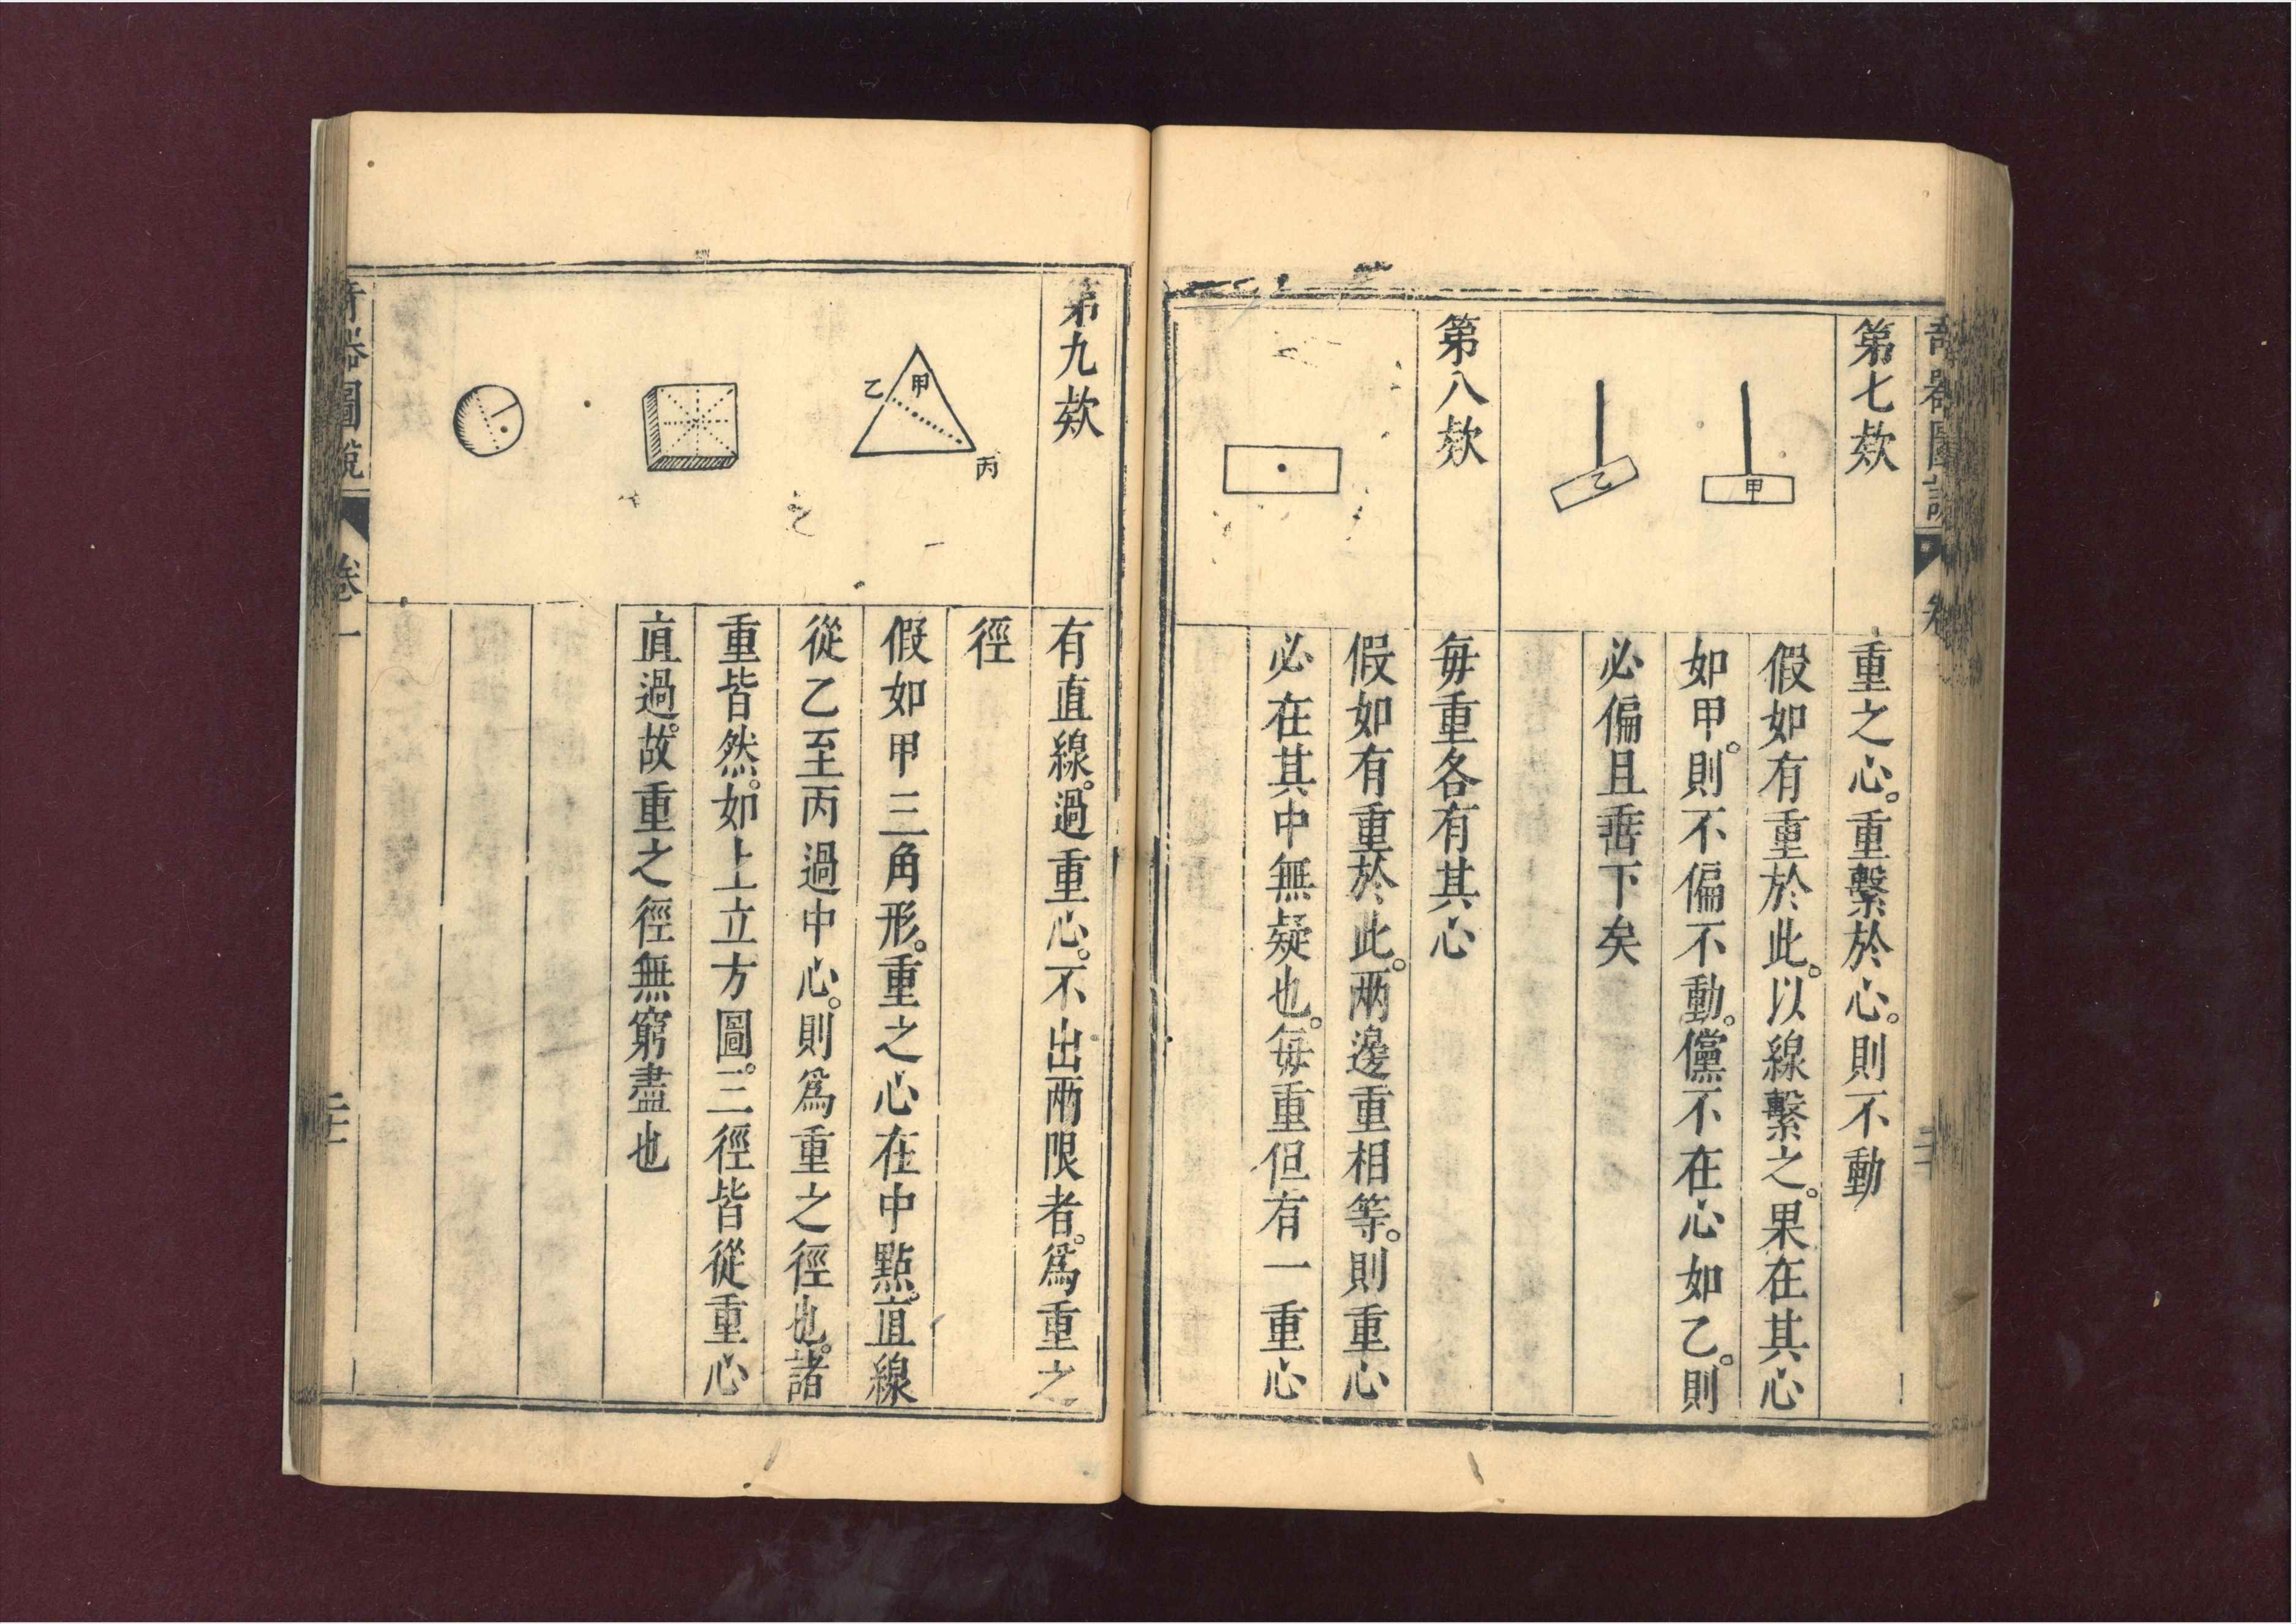 奇器圖說
卷
第七欵
甲
乙
重之心。重繫於心。則不動
假如有重於此。以線繫之。果在其心
如甲。則不偏不動。儻不在心如乙。則
必偏且垂下矣
第八欵
每重各有其心
假如有重於此。兩邊重相等。則重心
必在其中無疑也。每重但有一重心
第九欵
甲
乙
丙
有直線。過重心。不出兩限者。爲重之
徑
假如甲三角形。重之心在中點。直線
從乙至丙過中心。則爲重之徑也。諸
重皆然。如上立方圖。三徑皆從重心
直過。故重之徑無窮盡也
奇器圖說
卷一